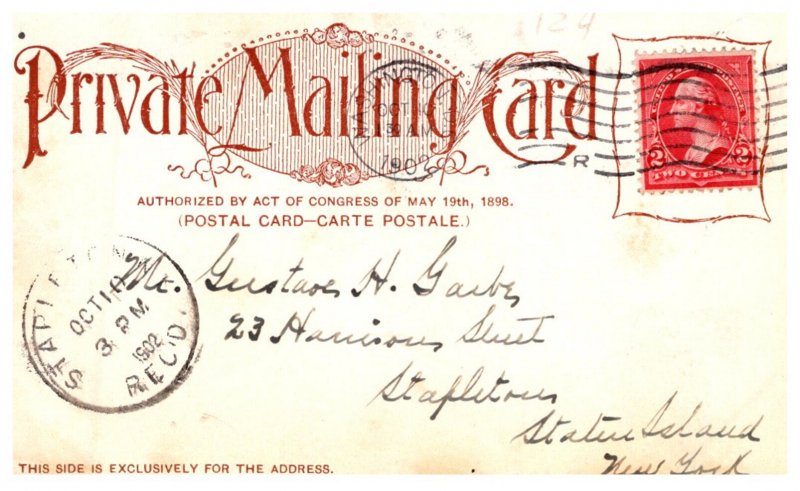 124
Private Mailing Card
WASHINGTON
OCT
AM
1902
R
2 2
TWO CENTS
AUTHORIZED BY ACT OF CONGRESS OF MAY 19th, 1898.
(POSTAL CARD—CARTE POSTALE.)
STAPLETON
OCT 10
3 PM
1902
REC'D.
Mr. Gustave H.
23 Harrison Street
Stapleton
Staten Island
New York
THIS SIDE IS EXCLUSIVELY FOR THE ADDRESS.